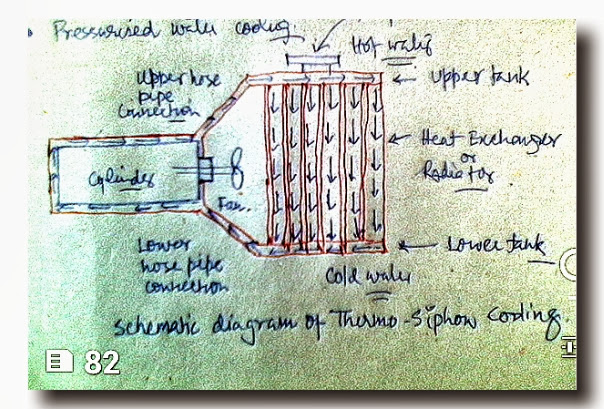 Pressurised water cooling.
Hot water
Upper hose
pipe
Connection
Upper tank
Heat Exchanger
or
Radiator.
Cylinder
Fan.
Lower
hose pipe
connection
Lower tank
Cold water
Schematic diagram of Thermo-Siphon Cooling.
82